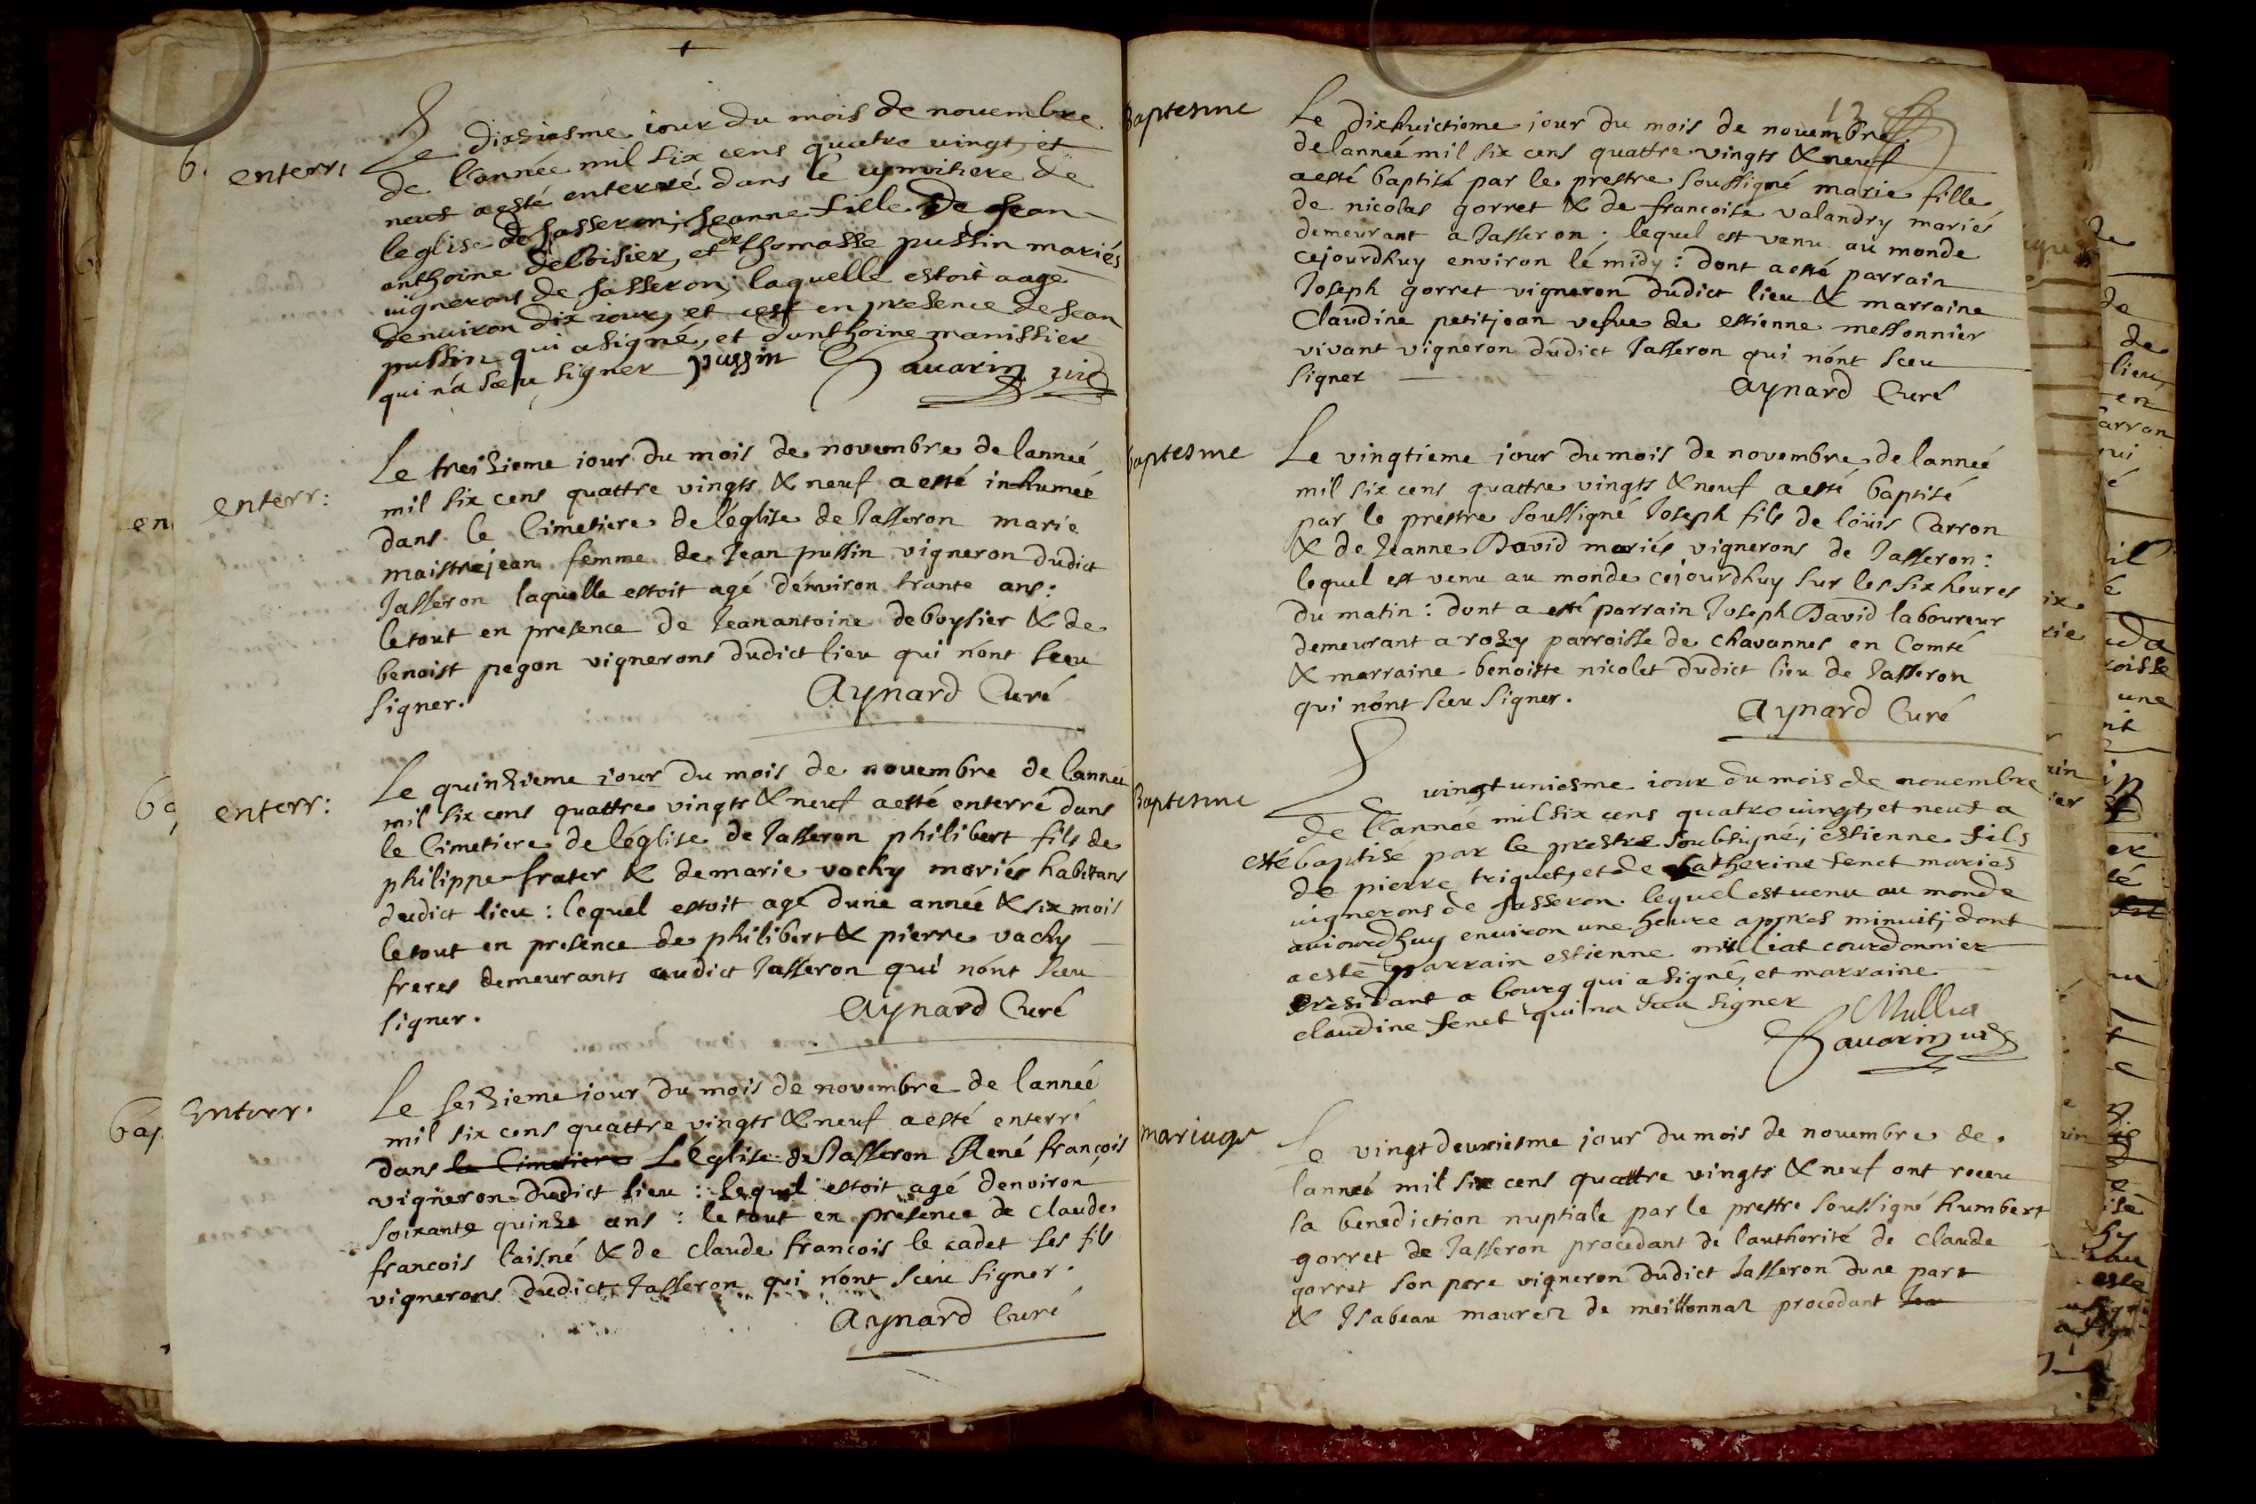 enterr:
Le dixiesme iour du mois de nouembre
de l'année mil six cens quatre vingt et
neuf a esté enterré dans le cymitiere de
leglise de Jasseron, Jeanne fille de Jean
anthoine deboisier, et de thomasse pussin mariés
uignerons de Jasseron, laquelle estoit aagé
denuiron dix iours, et cest en presence de Jean
pussin qui a signé, et danthoine manissier
qui n'a sceu signer pussin Sauarin vic
enterr:
Le treizieme iour du mois de novembre de lanneé
mil six cens quattre vingts & neuf a esté inhumeé
dans le Cimetiere de l'église de Jasseron marie
maistrejean femme de Jean pussin vigneron dudict
Jasseron laquelle estoit agé d'environ trante ans:
le tout en presence de Jeanantoine deboysier & de
benoist pegon vignerons dudict lieu qui n'ont sceu
signer. Aynard Curé
enterr:
Le quinzieme iour du mois de novembre de lanneé
mil six cens quattre vingts & neuf a esté enterré dans
le Cimetiere de l'église de Jasseron philibert fils de
philippe frater & de marie vachy mariés habitans
dudict lieu: lequel estoit agé dune année & six mois
le tout en presence de philibert & pierre vachy
freres demeurants audict Jasseron qui n'ont sceu
signer. Aynard Curé
Enterr.
Le seizieme iour du mois de novembre de l'anneé
mil six cens quattre vingts & neuf a esté enterré
dans le Cimetiere L'église de Jasseron René françois
vigneron dudict lieu: lequel estoit agé denviron
soixante quinze ans: le tout en presence de Claude
francois laisné & de Claude francois le cadet ses fils
vignerons dudict Jasseron qui n'ont sceu signer.
Aynard Curé
13
Baptesme
Le dixhuictieme jour du mois de novembre
de lanneé mil six cens quattre vingts & neuf
a esté baptisé par le prestre soussigné marie fille
de nicolas gorret & de francoise valandry mariés
demeurant a Jasseron: lequel est venu au monde
cejourdhuy environ lé midy: dont a esté parrain
Joseph gorret vigneron dudict lieu & marraine
Claudine petitjean vefue de estienne messonnier
vivant vigneron dudict Jasseron qui n'ont sceu
signer Aynard Curé
baptesme
Le vingtieme jour du mois de novembre de lanneé
mil six cens quattre vingts & neuf a esté baptisé
par le prestre soussigné Joseph fils de loüis Carron
& de Jeanne David mariés vignerons de Jasseron:
lequel est venu au monde cejourdhuy sur les six heures
du matin: dont a esté parrain Joseph David laboureur
demeurant a rozy parroisse de chavannes en Comté
& marraine benoitte nicolet dudict lieu de Jasseron
qui n'ont sceu signer.
Aynard Curé
Baptesme
Le vingt uniesme iour du mois de nouembre
de l'année mil six cens quatre uingt, et neuf a
esté baptisé par le prestre soubsigné, estienne fils
de pierre triquet, et de Catherine fenet mariés
uignerons de Jasseron. lequel est uenu au monde
auiourdhuy enuiron une heure appres minuit, dont
a esté parrain estienne milliat courdonnier
residant a bourg qui a signé, et marraine
claudine fenet qui na sceu signer
Sauarin vic
mariage
Le vingt deuxiesme jour du mois de novembre de
lanneé mil six cens quattre vingts & neuf ont receu
la benediction nuptiale par le prestre soussigné humbert
gorret de Jasseron procedant de lauthorité de Claude
gorret son pere vigneron dudict Jasseron dune part
& Isabeau maurez de meillonnaz procedant